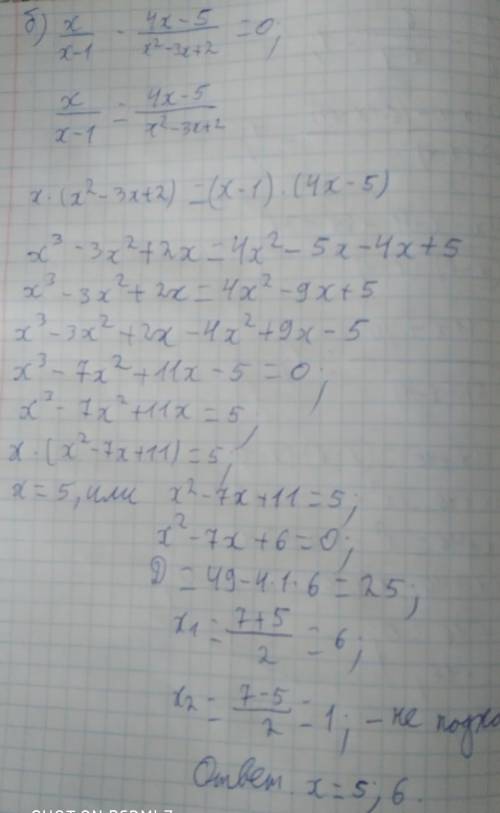 б) x/(x-1) - (4x-5)/(x²-3x+2) = 0;
x/(x-1) = (4x-5)/(x²-3x+2)
x·(x²-3x+2) = (x-1)·(4x-5)
x³-3x²+2x = 4x²-5x-4x+5
x³-3x²+2x = 4x²-9x+5
x³-3x²+2x-4x²+9x-5
x³-7x²+11x-5 = 0;
x³-7x²+11x = 5;
x·(x²-7x+11) = 5;
x = 5, или x²-7x+11 = 5;
x²-7x+6 = 0;
D = 49-4·1·6 = 25;
x₁ = (7+5)/2 = 6;
x₂ = (7-5)/2 = 1; - не
Ответ x = 5; 6.